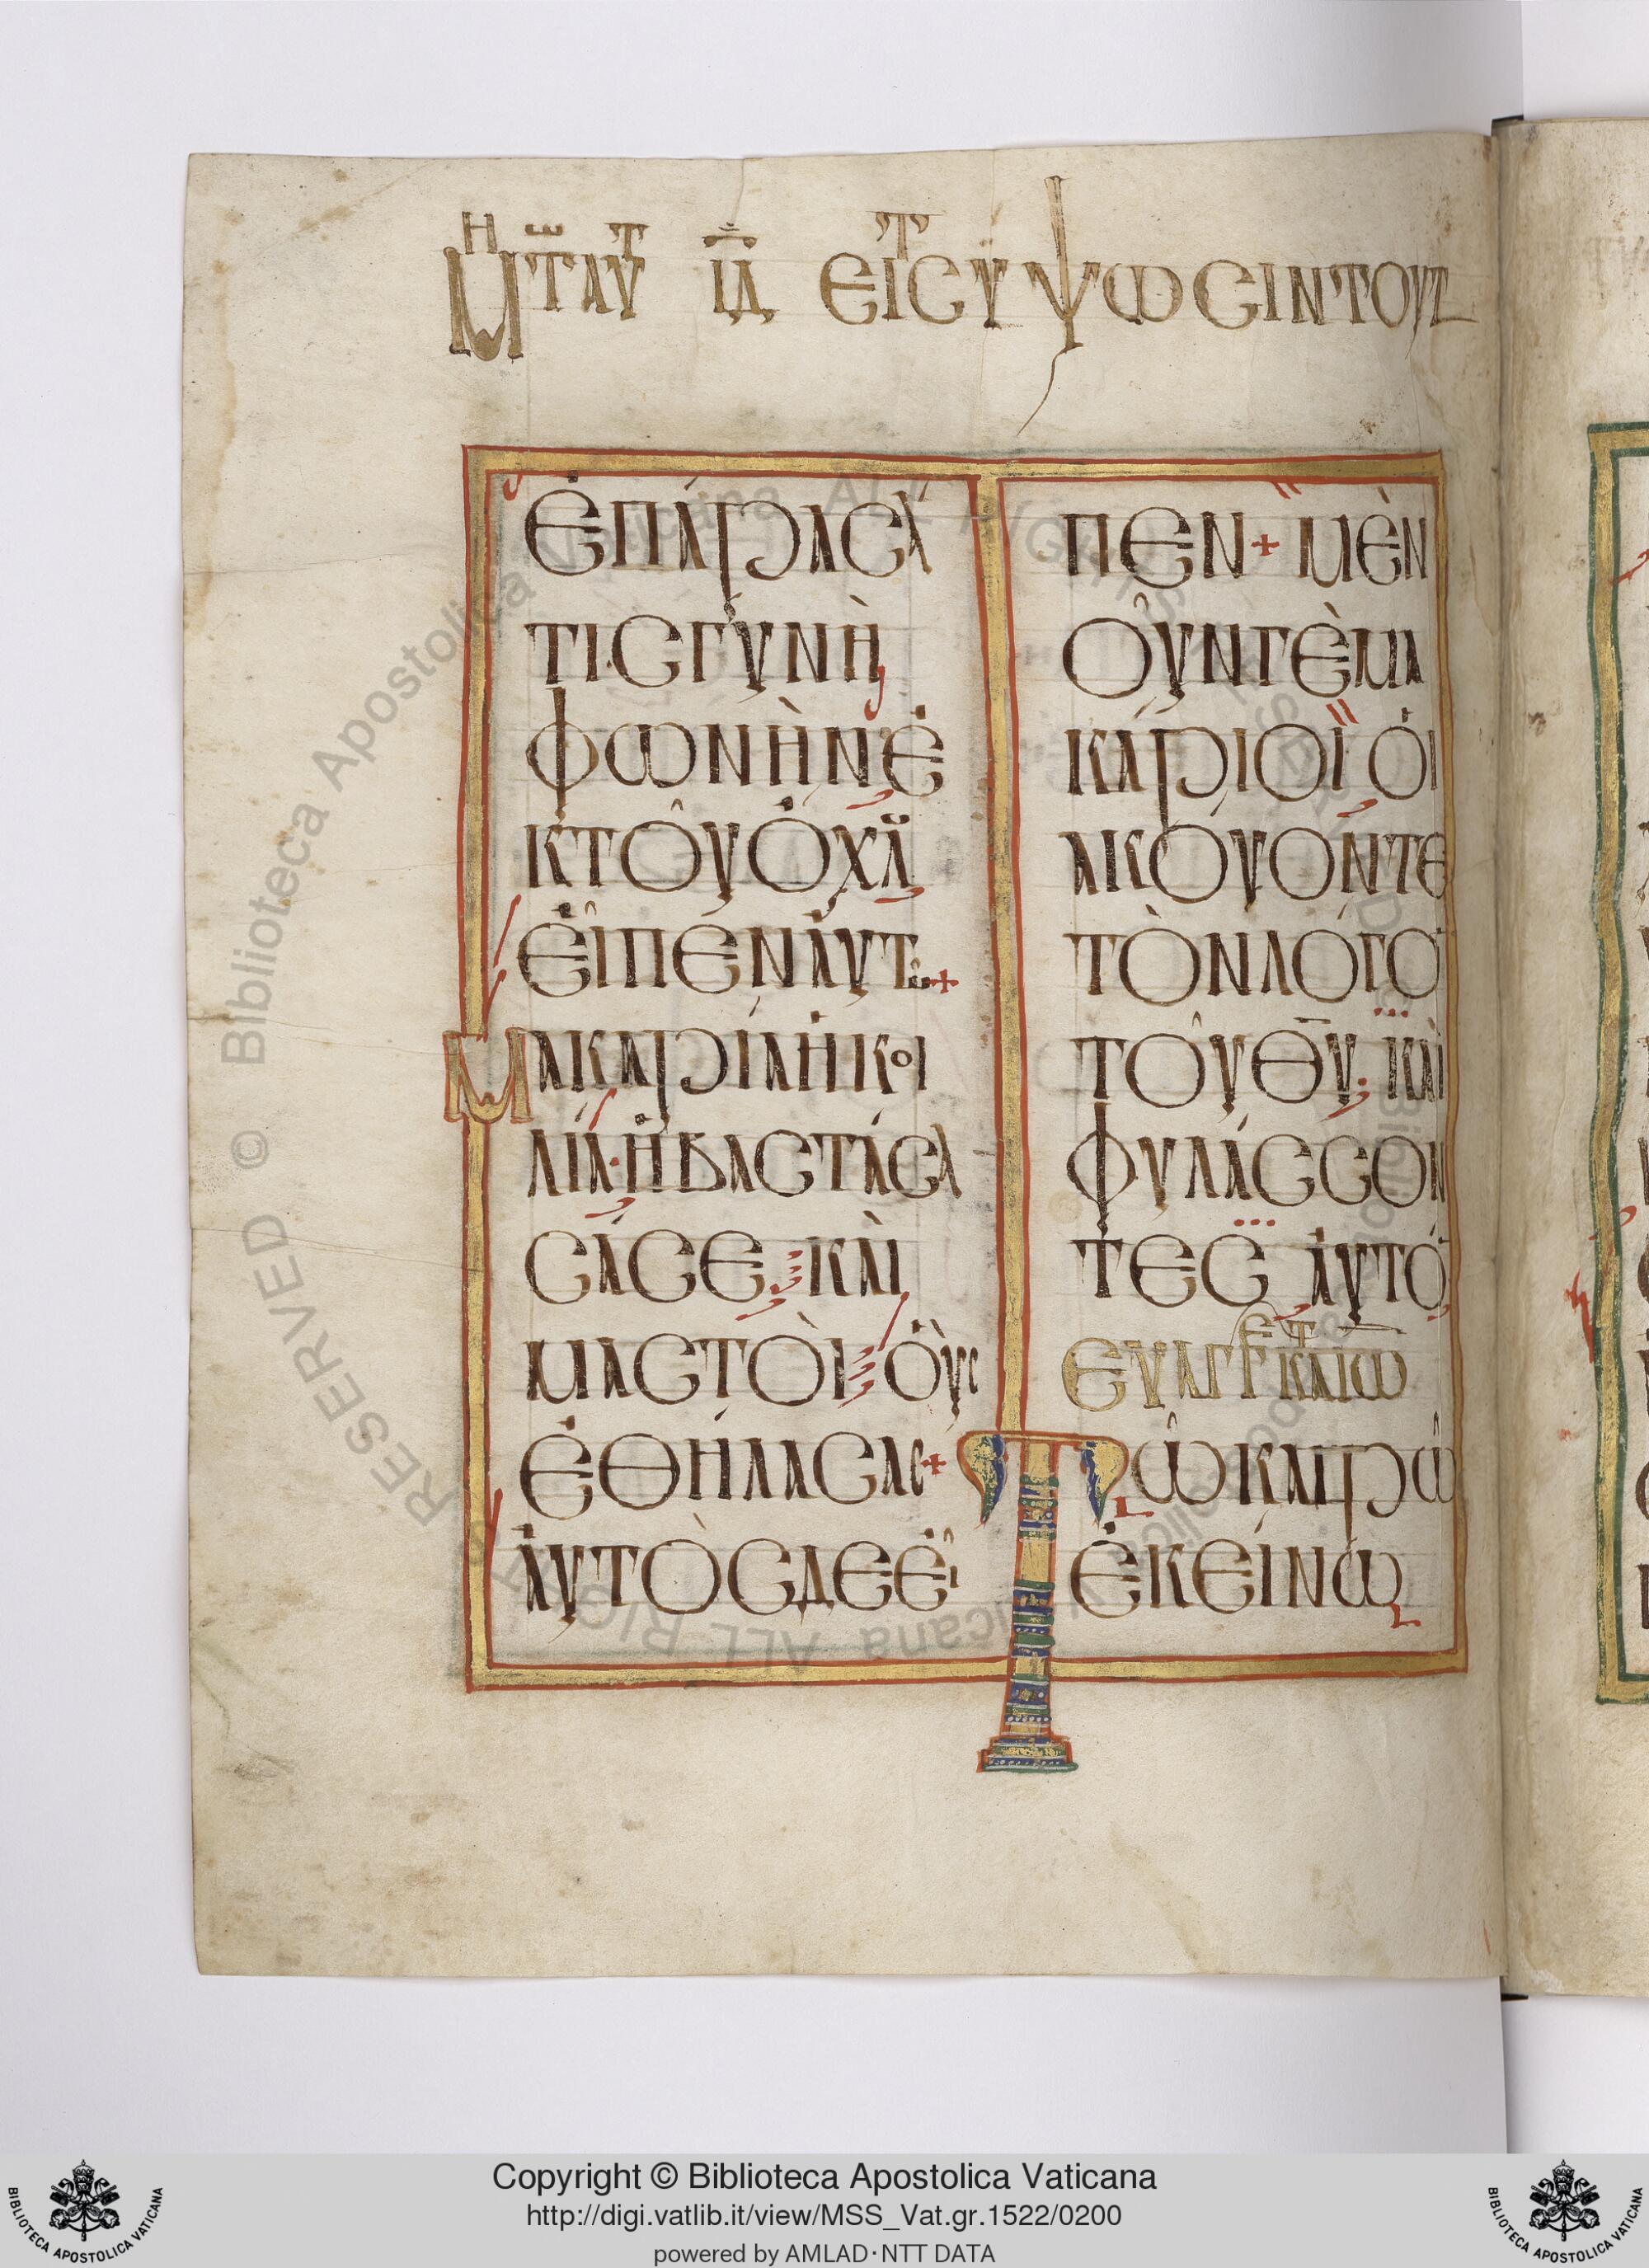 ΜΗ ΤΩ ΑΥΤ ΙΔ ΕΙΣ Τ ΥΨΩΣΙΝ ΤΟΥ
ἐπάρασά
τις γυνὴ
φωνὴν ἐ
κ τοῦ ὄχλ
εἶπεν αὐτῶ +
Μακαρία ἡ κοι
λία· ἡ βαστάσα
σά σε καὶ
μαστοὶ οὓς
ἐθήλασας +
αὐτὸς δὲ εἶ
πεν + μὲν
οῦν γὲ μα
κάριοι οἱ
ἀκούοντε
τὸν λόγο
τοῦ θυ· καὶ
φυλάσσον
τες αὐτό
ΕΥΑΓΓ Ε Κ Τ ΙΩ
Τῶ καιρῶ
ἐκείνω
Biblioteca Apostolica Vaticana ALL RIGHTS RESERVED ©
Copyright © Biblioteca Apostolica Vaticana
http://digi.vatlib.it/view/MSS_Vat.gr.1522/0200
powered by AMLAD·NTT DATA
BIBLIOTECA APOSTOLICA VATICANA
BIBLIOTECA APOSTOLICA VATICANA